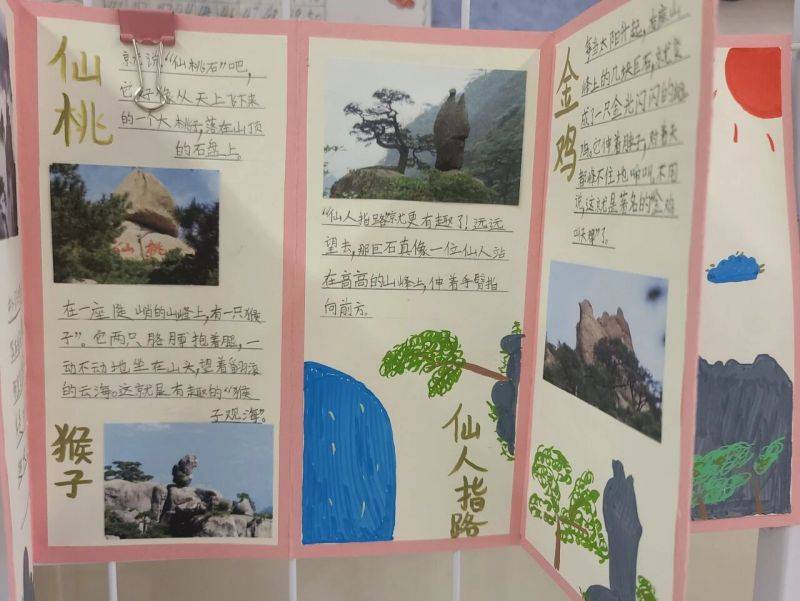 仙桃
就说“仙桃石”吧,
它好像从天上飞下来
的一个大桃子,落在山顶
的石盘上。
仙桃
在一座陡峭的山峰上,有一只猴
子”。它两只胳膊抱着腿,一
动不动地坐在山头,望着翻滚
的云海。这就是有趣的“猴
子观海”。
猴子
“仙人指路”就更有趣了!远远
望去,那巨石真像一位仙人站
在高高的山峰上,伸着手臂指
向前方。
仙人指路
金鸡
每当太阳升起,有座山
峰上的几块巨石,就变
成了一只金光闪闪的雄
鸡。它伸着脖子,对着天
都峰不住地啼叫。不用
说,这就是著名的“金鸡
叫天都”了。